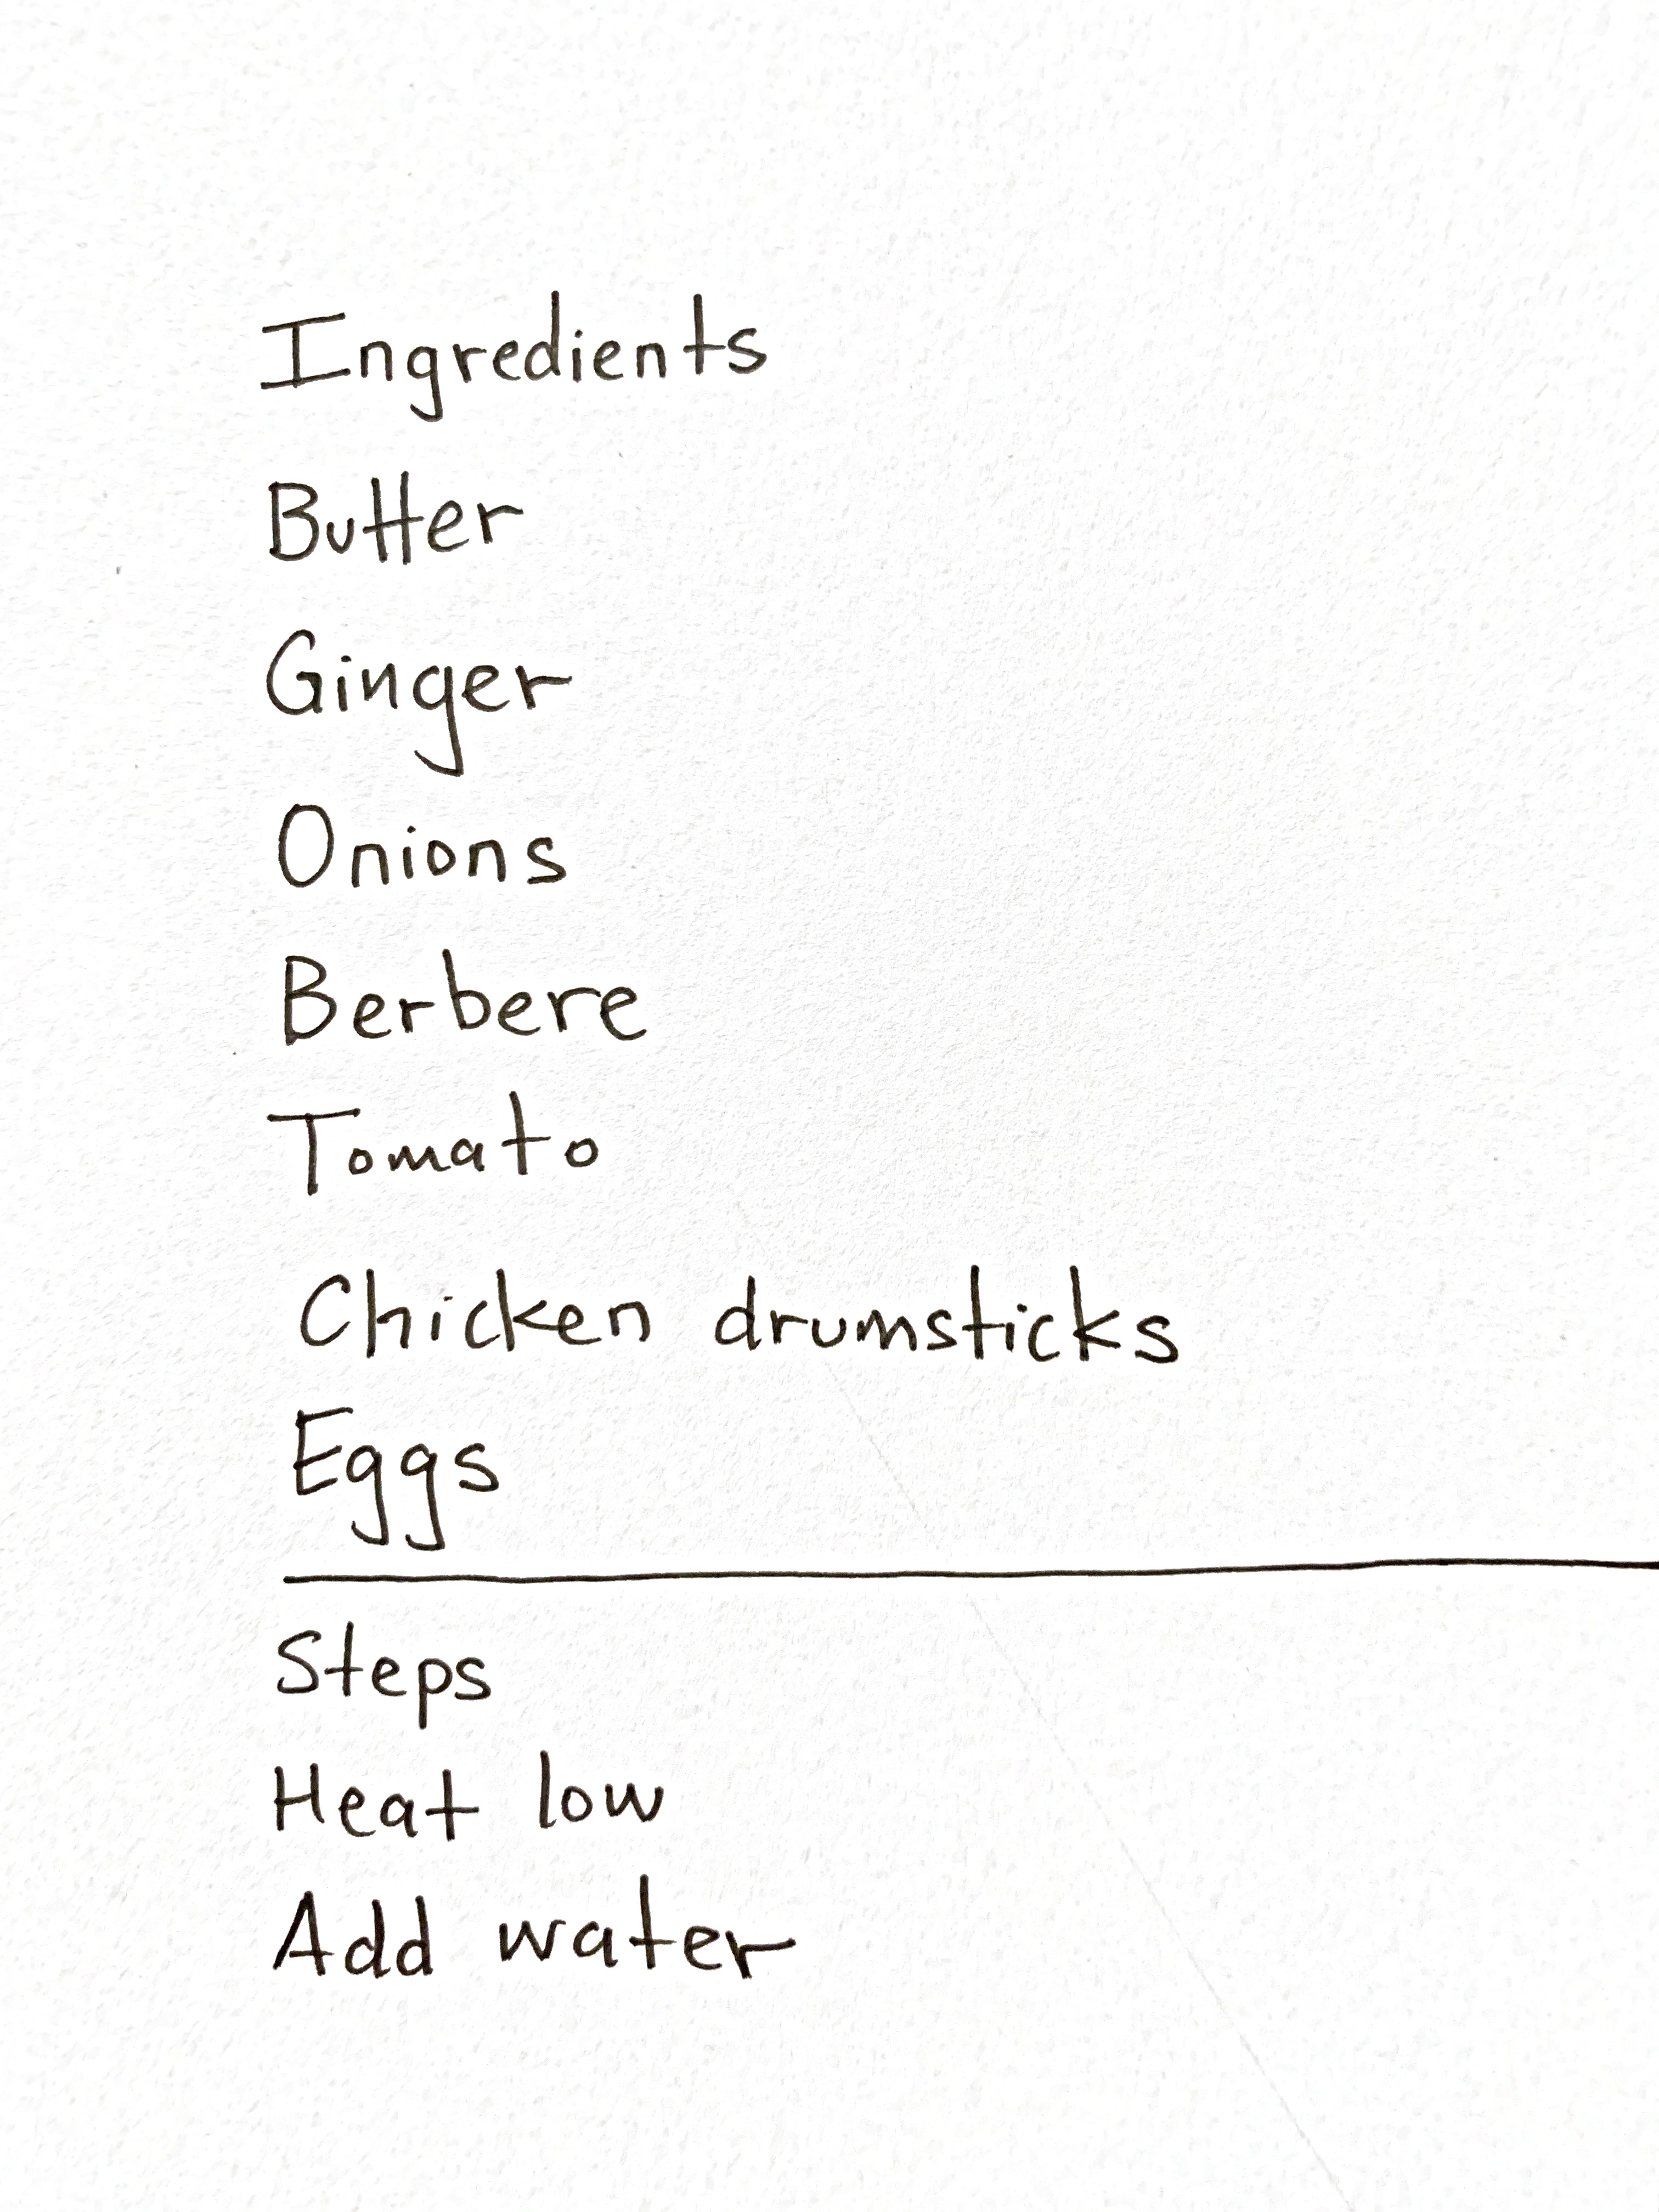 Ingredients
Butter
Ginger
Onions
Berbere
Tomato
Chicken drumsticks
Eggs
Steps
Heat low
Add water